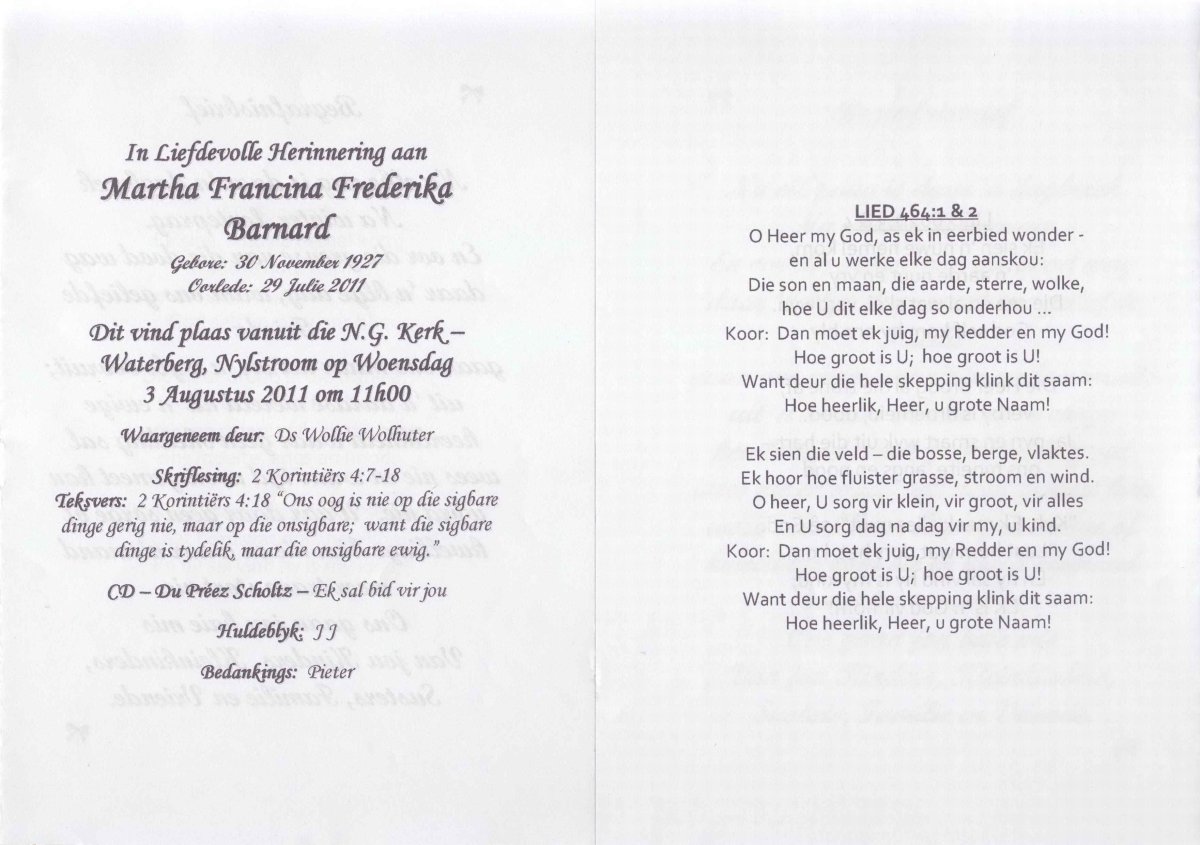 In Liefdevolle Herinnering aan
Martha Francina Frederika
Barnard
Gebore: 30 November 1927
Oorlede: 29 Julie 2011
Dit vind plaas vanuit die N.G. Kerk –
Waterberg, Nylstroom op Woensdag
3 Augustus 2011 om 11h00
Waargeneem deur: Ds Wollie Wolhuter
Skriflesing: 2 Korintiërs 4:7-18
Teksvers: 2 Korintiërs 4:18 “Ons oog is nie op die sigbare
dinge gerig nie, maar op die onsigbare; want die sigbare
dinge is tydelik, maar die onsigbare ewig.”
CD – Du Préez Scholtz – Ek sal bid vir jou
Huldeblyk: JJ
Bedankings: Pieter
LIED 464:1 & 2
O Heer my God, as ek in eerbied wonder -
en al u werke elke dag aanskou:
Die son en maan, die aarde, sterre, wolke,
hoe U dit elke dag so onderhou ...
Koor: Dan moet ek juig, my Redder en my God!
Hoe groot is U; hoe groot is U!
Want deur die hele skepping klink dit saam:
Hoe heerlik, Heer, u grote Naam!
Ek sien die veld – die bosse, berge, vlaktes.
Ek hoor hoe fluister grasse, stroom en wind.
O heer, U sorg vir klein, vir groot, vir alles
En U sorg dag na dag vir my, u kind.
Koor: Dan moet ek juig, my Redder en my God!
Hoe groot is U; hoe groot is U!
Want deur die hele skepping klink dit saam:
Hoe heerlik, Heer, u grote Naam!